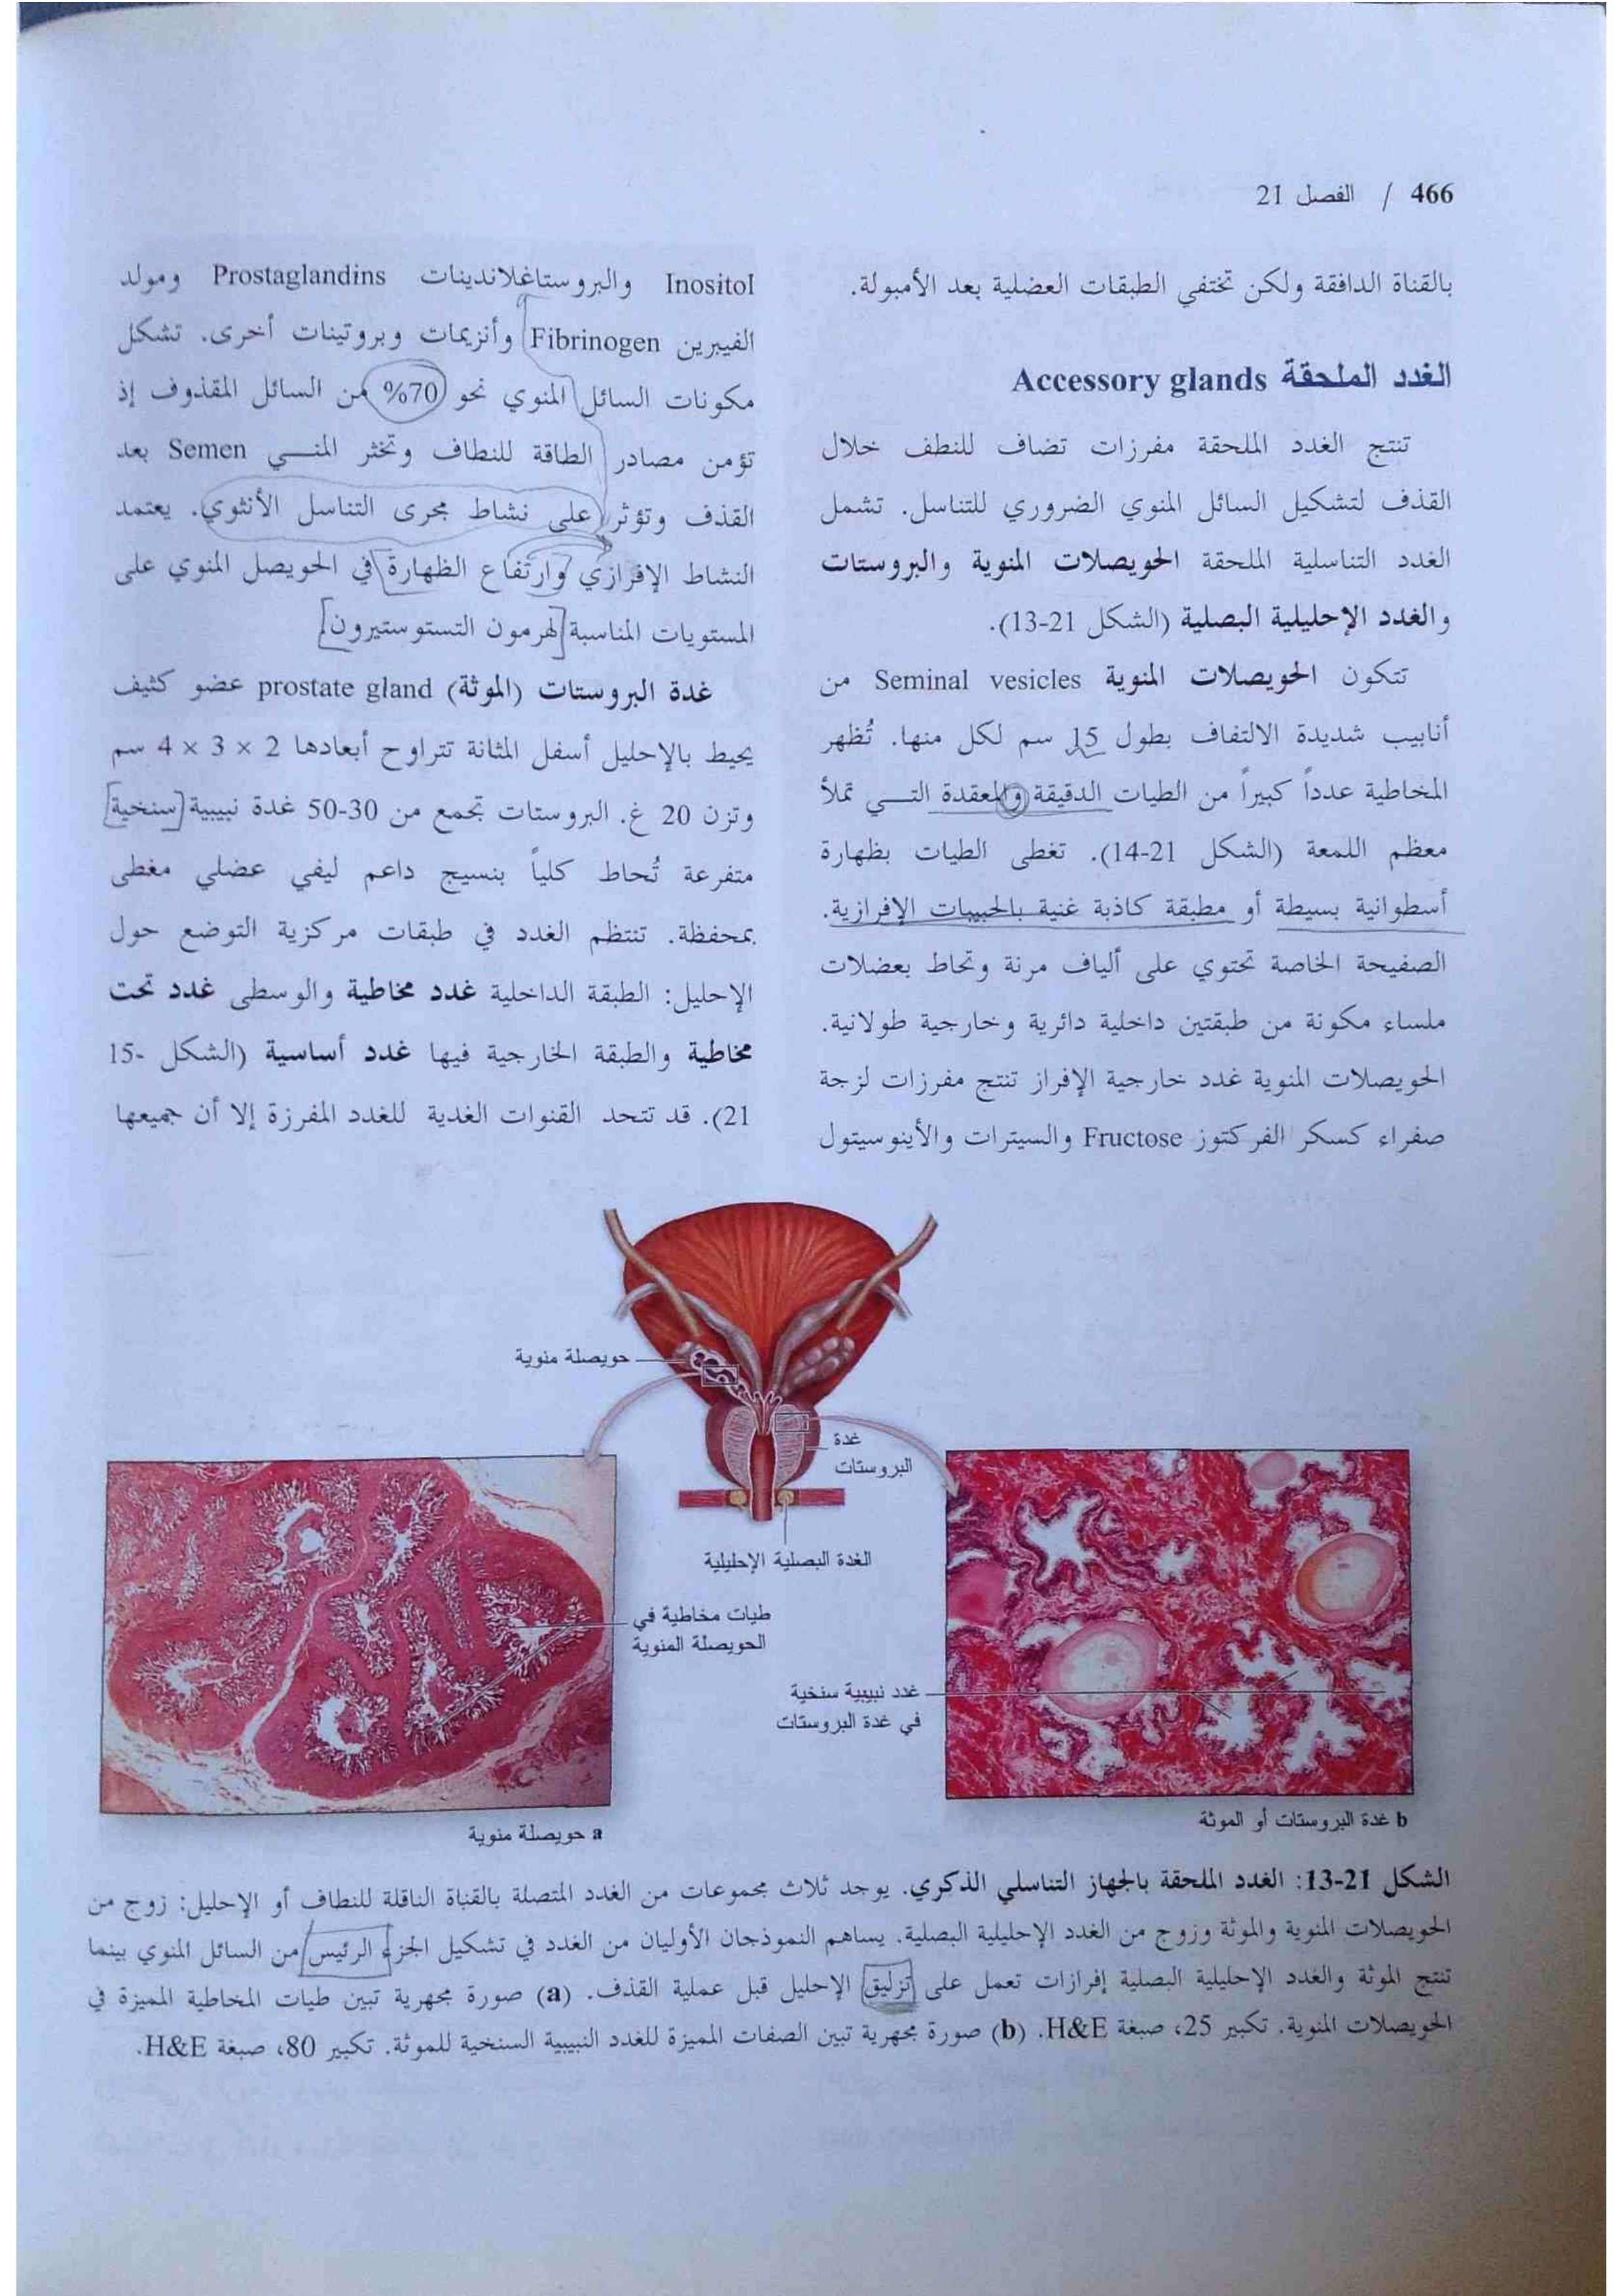 466 / الفصل 21
بالقناة الدافقة ولكن تختفي الطبقات العضلية بعد الأمبولة.
الغدد الملحقة Accessory glands
تنتج الغدد الملحقة مفرزات تضاف للنطف خلال
القذف لتشكيل السائل المنوي الضروري للتناسل. تشمل
الغدد التناسلية الملحقة الحويصلات المنوية والبروستات
والغدد الإحليلية البصلية (الشكل 21-13).
تتكون الحويصلات المنوية Seminal vesicles من
أنابيب شديدة الالتفاف بطول 15 سم لكل منها. تُظهر
المخاطية عدداً كبيراً من الطيات الدقيقة والمعقدة التي تملأ
معظم اللمعة (الشكل 21-14). تغطى الطيات بظهارة
أسطوانية بسيطة أو مطبقة كاذبة غنية بالحبيبات الإفرازية.
الصفيحة الخاصة تحتوي على ألياف مرنة وتحاط بعضلات
ملساء مكونة من طبقتين داخلية دائرية وخارجية طولانية.
الحويصلات المنوية غدد خارجية الإفراز تنتج مفرزات لزجة
صفراء كسكر الفركتوز Fructose والسيترات والأينوسيتول
Inositol والبروستاغلاندينات Prostaglandins ومولد
الفيبرين Fibrinogen وأنزيمات وبروتينات أخرى. تشكل
مكونات السائل المنوي نحو 70% من السائل المقذوف إذ
تؤمن مصادر الطاقة للنطاف وتخثر المني Semen بعد
القذف وتؤثر على نشاط مجرى التناسل الأنثوي. يعتمد
النشاط الإفرازي وارتفاع الظهارة في الحويصل المنوي على
المستويات المناسبة لهرمون التستوستيرون
غدة البروستات (الموثة) prostate gland عضو كثيف
يحيط بالإحليل أسفل المثانة تتراوح أبعادها 2 × 3 × 4 سم
وتزن 20 غ. البروستات تجمع من 30-50 غدة نبيبية سنخية
متفرعة تُحاط كلياً بنسيج داعم ليفي عضلي مغطى
بمحفظة. تنتظم الغدد في طبقات مركزية التوضع حول
الإحليل: الطبقة الداخلية غدد مخاطية والوسطى غدد تحت
مخاطية والطبقة الخارجية فيها غدد أساسية (الشكل 15-
21). قد تتحد القنوات الغدية للغدد المفرزة إلا أن جميعها
حويصلة منوية
غدة
البروستات
الغدة البصلية الإحليلية
طيات مخاطية في
الحويصلة المنوية
غدد نبيبية سنخية
في غدة البروستات
a حويصلة منوية
b غدة البروستات أو الموثة
الشكل 21-13: الغدد الملحقة بالجهاز التناسلي الذكري. يوجد ثلاث مجموعات من الغدد المتصلة بالقناة الناقلة للنطاف أو الإحليل: زوج من
الحويصلات المنوية والموثة وزوج من الغدد الإحليلية البصلية. يساهم النموذجان الأوليان من الغدد في تشكيل الجزء الرئيس من السائل المنوي بينما
تنتج الموثة والغدد الإحليلية البصلية إفرازات تعمل على تزليق الإحليل قبل عملية القذف. (a) صورة مجهرية تبين طيات المخاطية المميزة في
الحويصلات المنوية. تكبير 25، صبغة H&E. (b) صورة مجهرية تبين الصفات المميزة للغدد النبيبية السنخية للموثة. تكبير 80، صبغة H&E.